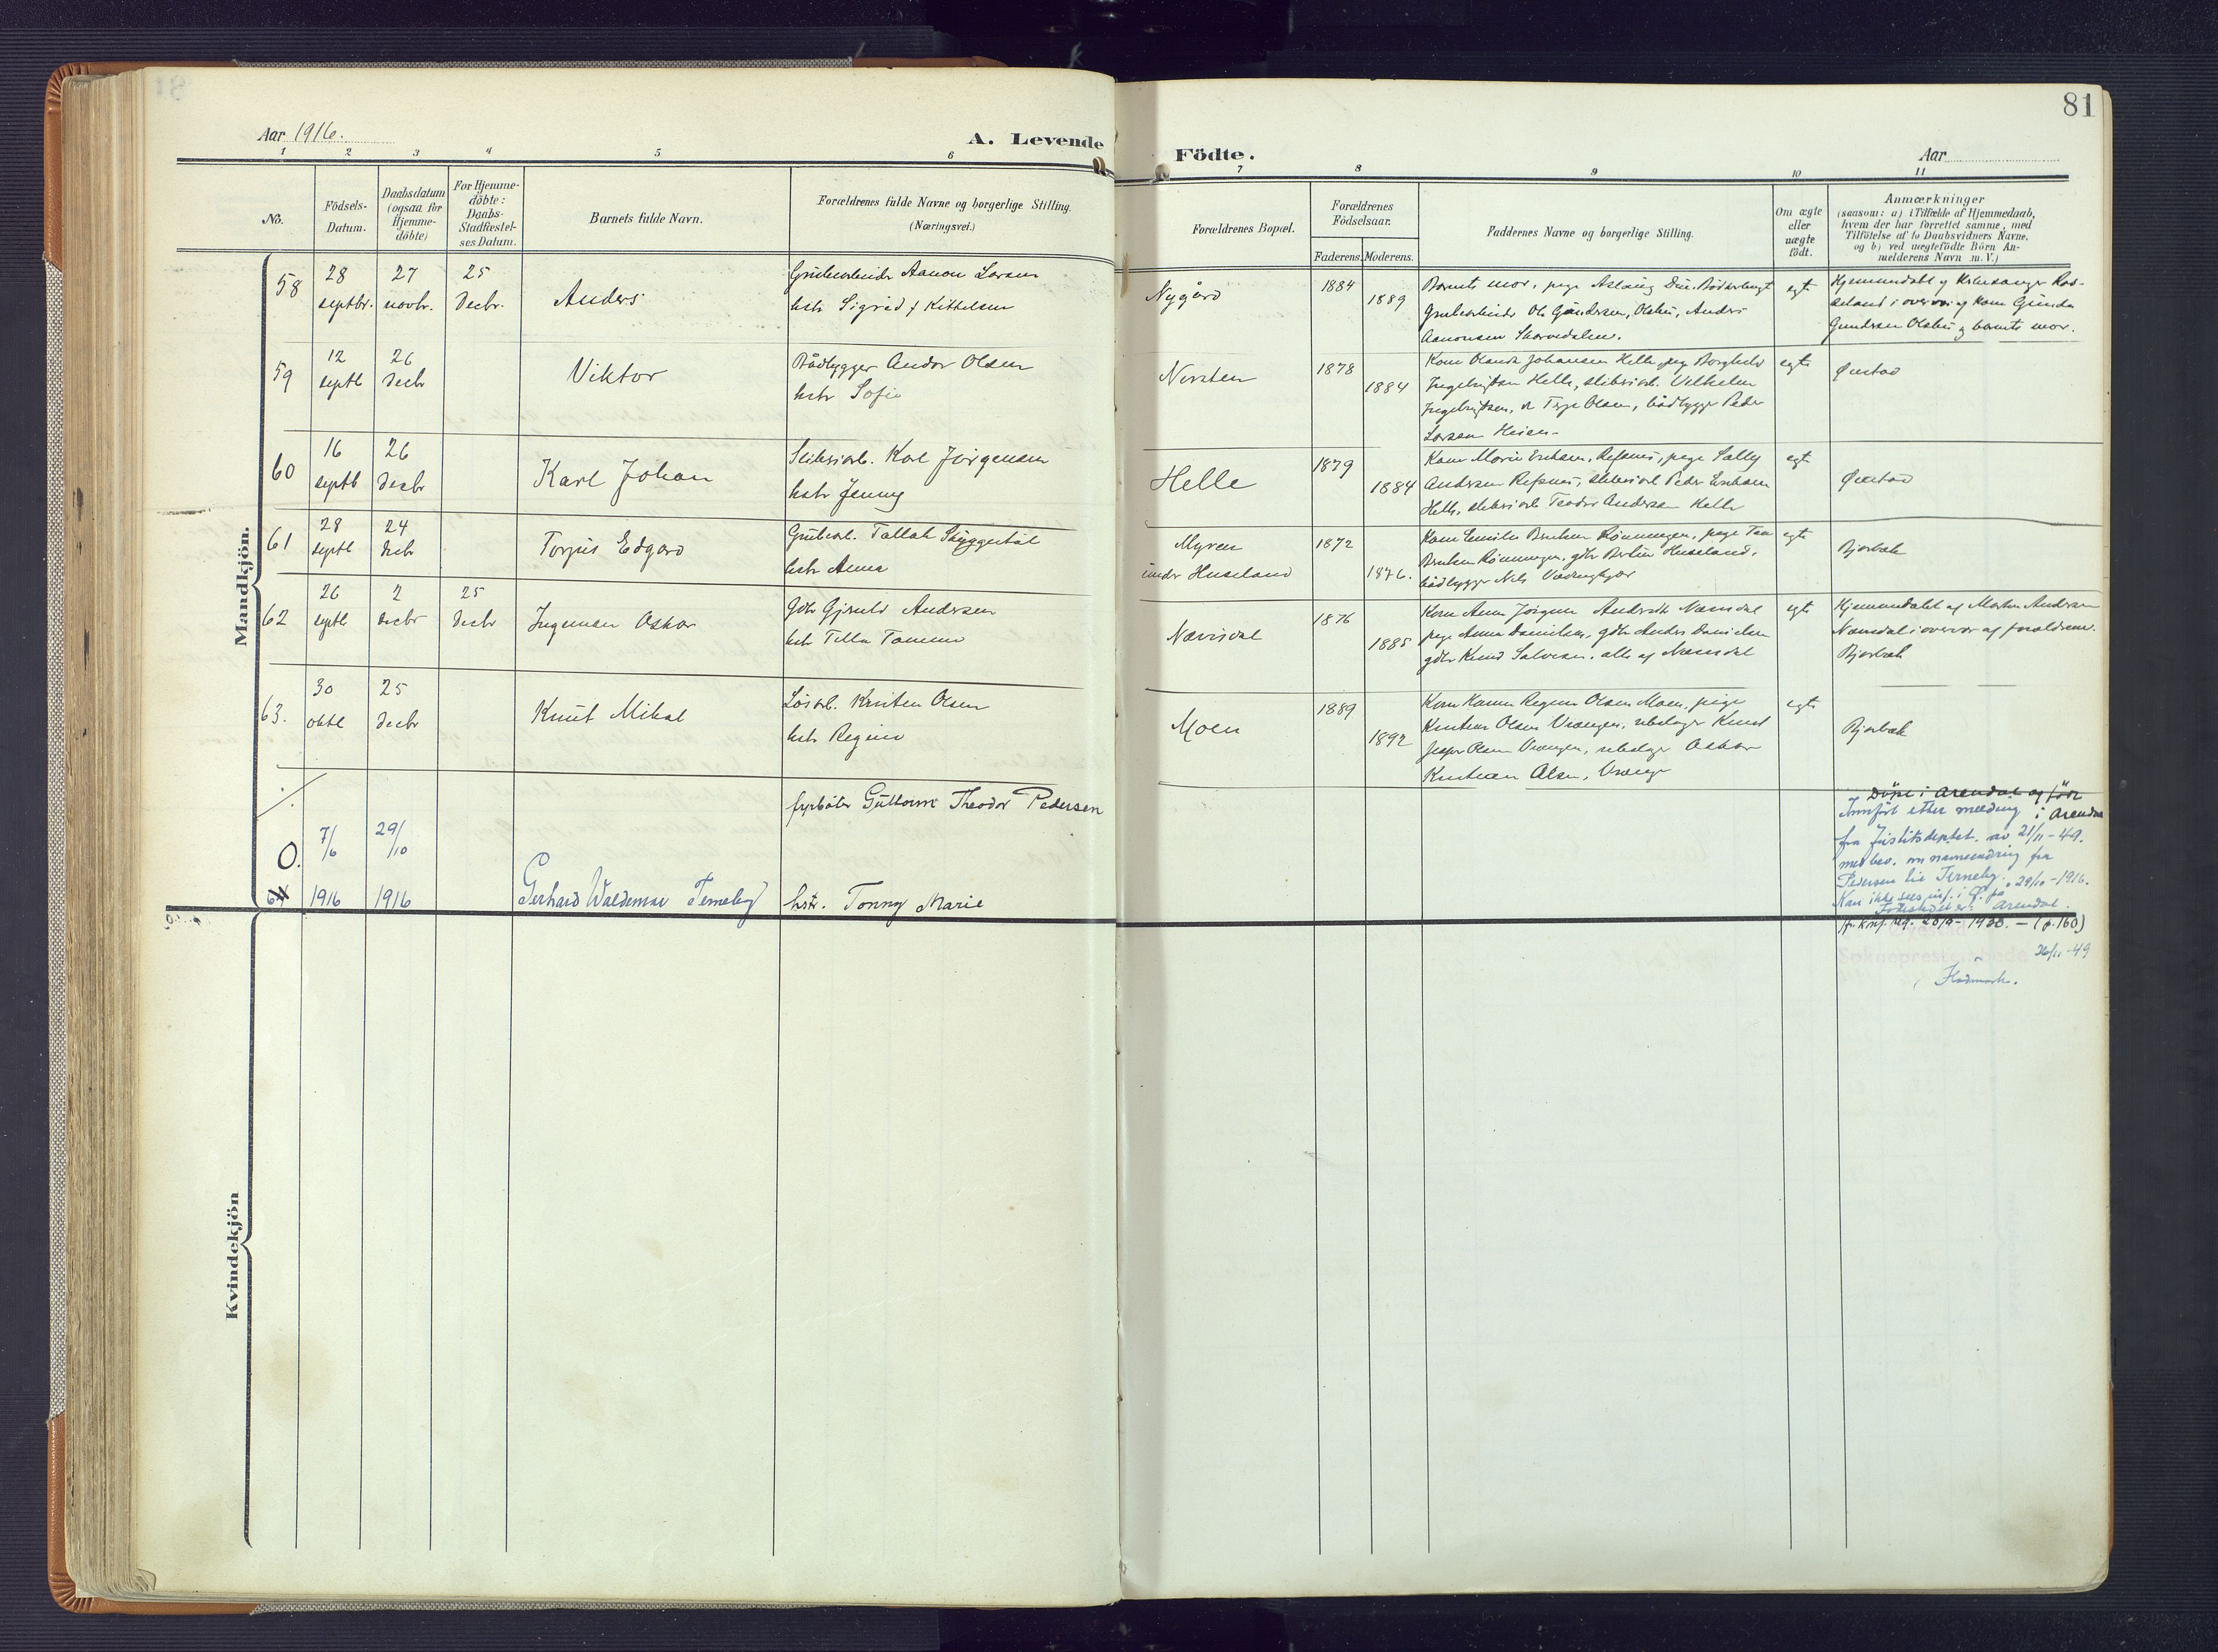 81
Aar 1916.
A. Levende
Födte.
Aar
1 2 3 4 5 6 7 8 9 10 11
No.
Födsels-
Datum.
Daabsdatum
(ogsaa for
Hjemme-
döbte)
For Hjemme-
döbte:
Daabs-
Stadfæstel-
ses Datum.
Barnets fulde Navn.
Forældrenes fulde Navne og borgerlige Stilling.
(Næringsvei.)
Forældrenes Bopæl.
Forældrenes
Födselsaar.
Faderens. Moderens.
Faddernes Navne og borgerlige Stilling.
Om ægte
eller
uægte
födt.
Anmærkninger
(saasom: a) i Tilfælde af Hjemmedaab,
hvem der har forrettet samme, med
Tilföielse af to Daabsvidners Navne,
og b) ved uægtefödte Börn An-
melderens Navn m. V.)
Mandkjön.
58
28
septbr.
27
novbr.
25
Decbr.
Anders
Grubearbeider Aanon Larsen
hstr Sigrid f Kittelsen
Nygård
1884
1889
Barnets mor, pige Aslaug
Grubearbeider Ole Gundersen, Olsbu, Anders
Aanonsen
egt
Hjemmedøbt af
i overvær af Kone Gunda
Gundersen Olsbu og barnets mor.
59
12
septb
26
decbr
Viktor
Bådbygger Andor Olsen
hstr Sofie
Nersten
1878
1884
Kone Olava Johansen Helle, pige Borghild
Ingebrigtsen Helle, sliberiarb. Vilhelm
Ingebrigtsen, Terje Olsen, bådbygger Peder
Larsen
egte
Øiestad
60
16
septb
26
decbr
Karl Johan
Sliberiarb. Karl Jørgensen
hstr Jenny
Helle
1879
1884
Kone Marie Eriksen, Refsnes, pige Sally
Andersen Refsnes, sliberiarb Peder Eriksen
Helle, sliberiarb Teodor Andersen Helle
egt
Øiestad
61
28
septb
24
decbr
Torjus Edgard
Grubearb. Tallak Skyggestøl
hstr Anna
Myren
under Huseland
1872
1876.
Kone Emilie Bentsen Rønningen, pige Tea
Bentsen Rønningen, gbr Huseland,
bådbygger Nils
egte
Bjorbæk
62
26
septb
2
decbr
25
decbr
Ingeman Oskar
Gbr Gjeruld Andersen
hstr Tilla Tomine
Nævisdal
1876
1885
Kone Anna Jørgine Nævisdal
pige Anna Danielsen, gbr Anders Danielsen
gbr Knud Salvesen, alle af Nævisdal
egte
Hjemmedøbt af Morten Andersen
Nævisdal i overvær af forældrene.
Bjorbæk
63.
30
oktb
25
decbr
Knut Mikal
Løsarb. Kristen Olsen
hstr Regine
Moen
1889
1892
Kone Regine Olsen Moen, pige
Olsen Vrængen, Knut
Jesper Olsen Vrængen, Oskar
Kristian Olsen, Vrænge
egte
Bjorbæk
0.
64
7/6
1916
29/10
1916
Gerhard Waldemar Terneby
fyrbøter Guttorm Theodor Pedersen
hstr. Tonny Marie
Døpt i Arendal og født
i Arendal
Innført etter melding
fra Justitsdeptet. av 21/11-49.
med bev. om navneendring fra
Pedersen til Terneby. 29/10-1916.
Kan ikke sees inf. i
Fødestedet er: Arendal.
1930. – (p.160)
26/11-49
Kvindekjön